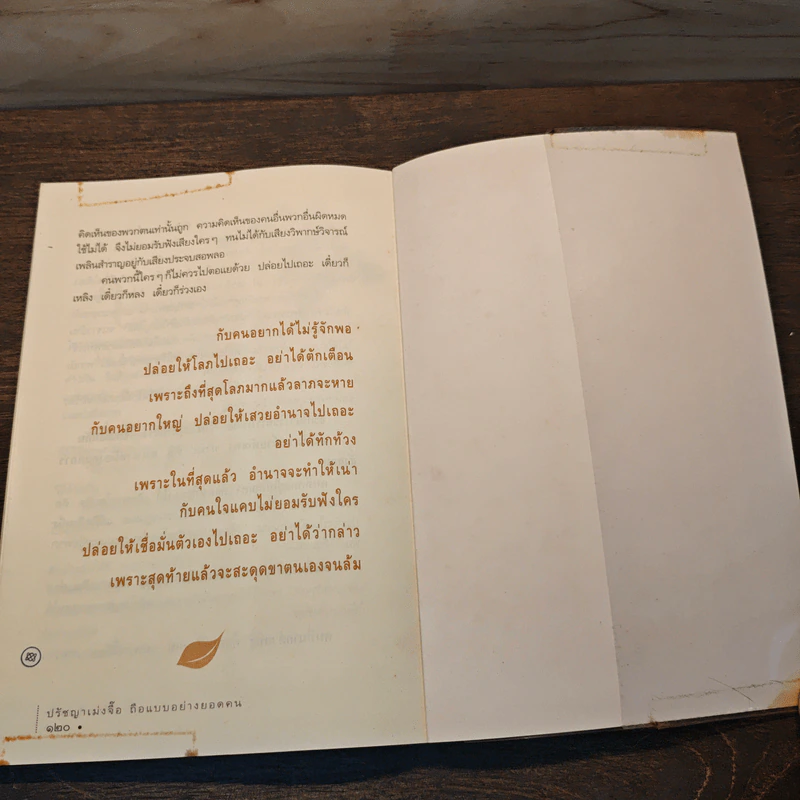 คิดเห็นของพวกตนเท่านั้นถูก ความคิดเห็นของคนอื่นพวกอื่นผิดหมด
ใช้ไม่ได้ จึงไม่ยอมรับฟังเสียงใคร ๆ ทนไม่ได้กับเสียงวิพากษ์วิจารณ์
เพลินสำราญอยู่กับเสียงประจบสอพลอ
คนพวกนี้ใคร ๆ ก็ไม่ควรไปตอแยด้วย ปล่อยไปเถอะ เดี๋ยวก็
เหลิง เดี๋ยวก็หลง เดี๋ยวก็ร่วงเอง
กับคนอยากได้ไม่รู้จักพอ
ปล่อยให้โลภไปเถอะ อย่าได้ตักเตือน
เพราะถึงที่สุดโลภมากแล้วลาภจะหาย
กับคนอยากใหญ่ ปล่อยให้เสวยอำนาจไปเถอะ
อย่าได้ทักท้วง
เพราะในที่สุดแล้ว อำนาจจะทำให้เน่า
กับคนใจแคบไม่ยอมรับฟังใคร
ปล่อยให้เชื่อมั่นตัวเองไปเถอะ อย่าได้ว่ากล่าว
เพราะสุดท้ายแล้วจะสะดุดขาตนเองจนล้ม
ปรัชญาเม่งจื๊อ ถือแบบอย่างยอดคน
๑๒๐ •